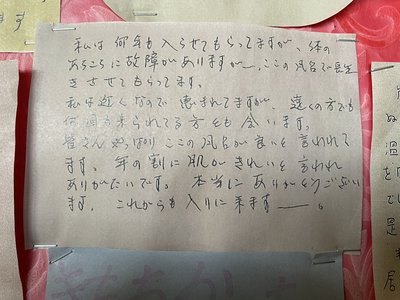 ます
私は何年も入らせてもらってますが、体の
あちこちに故障がありますが、ここの風呂で長生
きさせてもらってます。
私は近くなので恵まれてますが、遠くの方でも
何週も来られてる方とも会います。
皆さんやっぱりここの風呂が良いと言われて
ます。年の割に肌がきれいと言われ
ありがたいです。本当にありがとうござい
ます。これからも入りに来ます。
ぬ
温
を
て
是
居